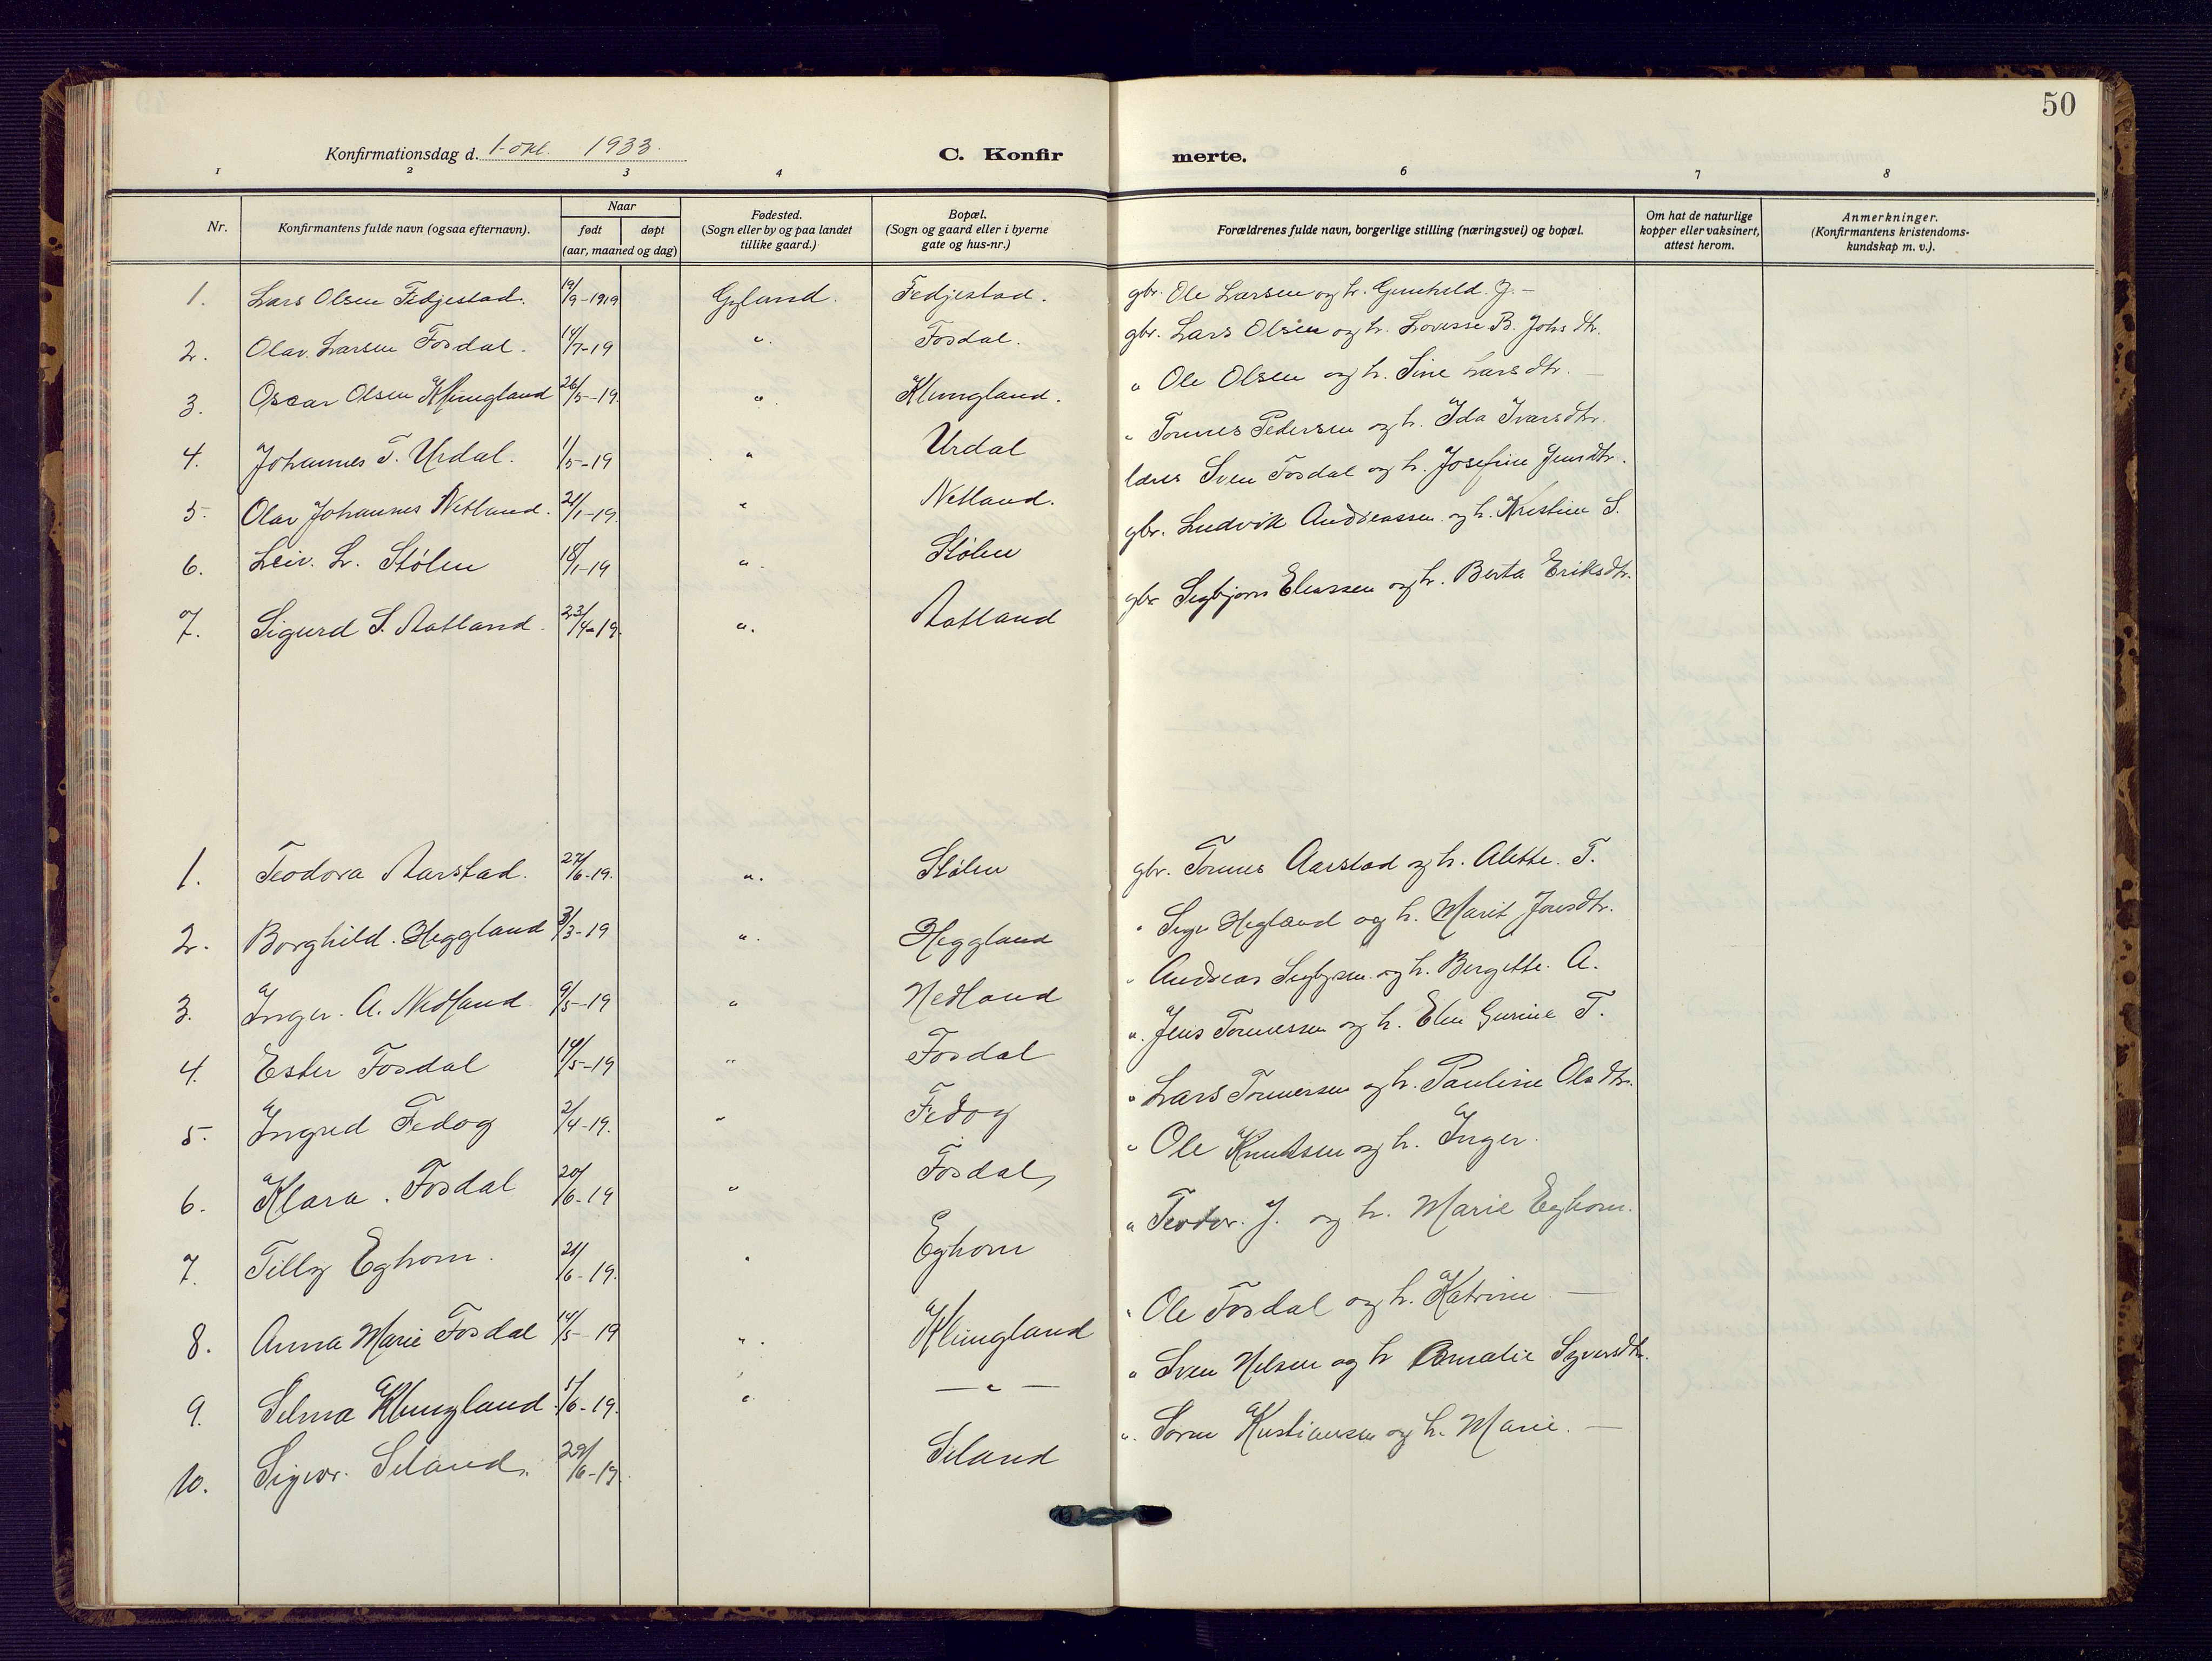 50
Konfirmationsdag d. 1-okt. 1933.
C. Konfirmerte.
1 2 3 4 6 7 8
Nr. Konfirmantens fulde navn (ogsaa efternavn). Naar født døpt (aar, maaned og dag) Fødested. (Sogn eller by og paa landet tillike gaard.) Bopæl. (Sogn og gaard eller i byerne gate og hus-nr.) Forældrenes fulde navn, borgerlige stilling (næringsvei) og bopæl. Om hat de naturlige kopper eller vaksinert, attest herom. Anmerkninger. (Konfirmantens kristendomskundskap m. v.).
1. Lars Olsen Fedjestad. 19/9-1919 Gyland. Fedjestad. gbr. Ole Larsen og h. Gunhild. J. —
2. Olav. Larsen Fosdal. 14/7-19 ". Fosdal. gbr. Lars Olsen og h. Lovisse B. Johs dtr.
3. Oscar Olsen Klungland 26/5-19. ". Klungland. " Ole Olsen og h. Sine Larsdtr. —
4. Johannes T. Urdal. 1/5-19 " Urdal " Tønnes Pedersen og h. Ida Ivarsdtr.
5. Olav Johannes Netland. 21/1-19. " Netland. lærer Sven Fosdal og h. Josefine Jensdtr.
6. Leiv. L. Stølen 18/1-19 ". Stølen gbr. Ludvik Andreassen og h. Kristine S.
7. Sigurd S. Aatland. 23/4-19. ". Aatland gbr Segbjørn Eliassen og h. Berta Eriksdtr.
1. Teodora Aarstad. 27/6-19. ". Stølen gbr. Tønnes Aarstad og h. Alette. T.
2. Borghild. Heggland 3/3-19 ". Heggland " Hegland og h. Marit Jonsdtr.
3. Inger. A. Nedland 9/5-19 " Nedland " Andreas og h. Bergette. A.
4. Ester Fosdal 14/5-19 " Fosdal ". Jens Tønnessen og h. Elen Gurine T.
5. Ingrid Fedog 2/4-19. " Fedog " Lars Tønnersen og h. Pauline Olsdtr.
6. Klara. Fosdal 20/6-19 " Fosdal " Ole Knudsen og h. Inger.
7. Tilly Eghom. 21/6-19. " Eghom " Teodor. J. og h. Marie Eghom.
8. Anna Marie Fosdal 14/5-19 ". Klungland " Ole Fosdal og h. Katrine —
9. Selma Klungland. 1/6-19. " — " — " Sven Nelsen og h Amalie Syversdtr.
10. Sigvor. Seland. 29/6-19. Seland ". Søren Kristiansen og h. Marie. —